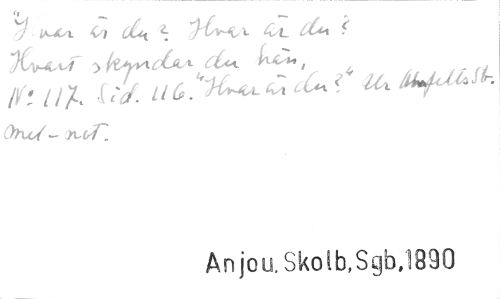 "Hvar är du? Hvar är du?
Hvart skyndar du hän,
No 117. Sid. 116. "Hvar är du?" Ur Ahnfelts Sb.
mel-not.
Anjou, Skolb, Sgb, 1890